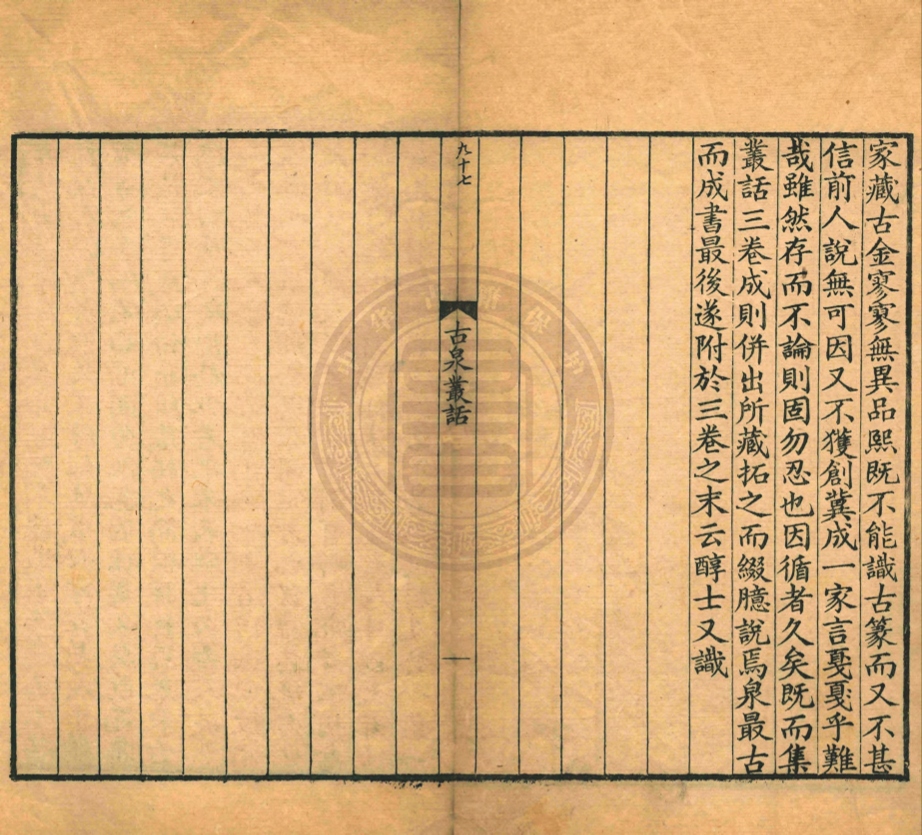 家藏古金寥寥無異品熙既不能識古篆而又不甚
信前人說無可因又不獲創冀成一家言戛戛乎難
哉雖然存而不論則固勿忍也因循者久矣既而集
叢話三卷成則併出所藏拓之而綴臆說焉泉最古
而成書最後遂附於三卷之末云醇士又識
九十七
古泉叢話
一